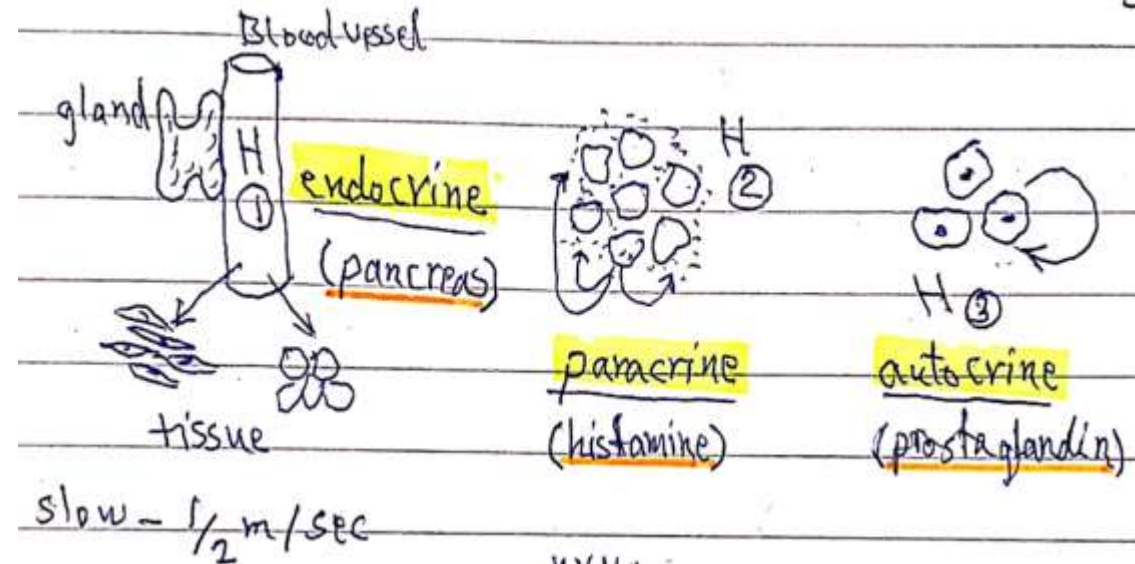 Blood vessel
gland
H
①
endocrine
(pancreas)
tissue
H
②
paracrine
(histamine)
H ③
autocrine
(prostaglandin)
slow - 1/2 m/sec